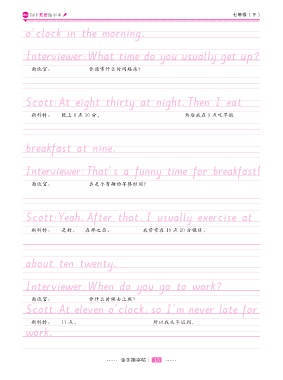 七年级(下)
o'clock in the morning.
Interviewer: What time do you usually get up?
面试官: 你通常什么时间起床?
Scott: At eight thirty at night. Then I eat
斯科特: 晚上8点30分。 然后我在9点吃早饭
breakfast at nine.
Interviewer: That's a funny time for breakfast!
面试官: 那是个有趣的早餐时间!
Scott: Yeah. After that, I usually exercise at
斯科特: 是的。 在那之后, 我常常在10点20分锻炼。
about ten twenty.
Interviewer: When do you go to work?
面试官: 你什么时候去上班?
Scott: At eleven o'clock, so I'm never late for
斯科特: 11点, 所以我从不迟到。
work.